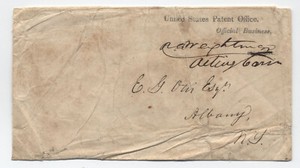 United States Patent Office.
Official Business.
Acting Com
E. G. Otis Esqr
Albany,
N.Y.